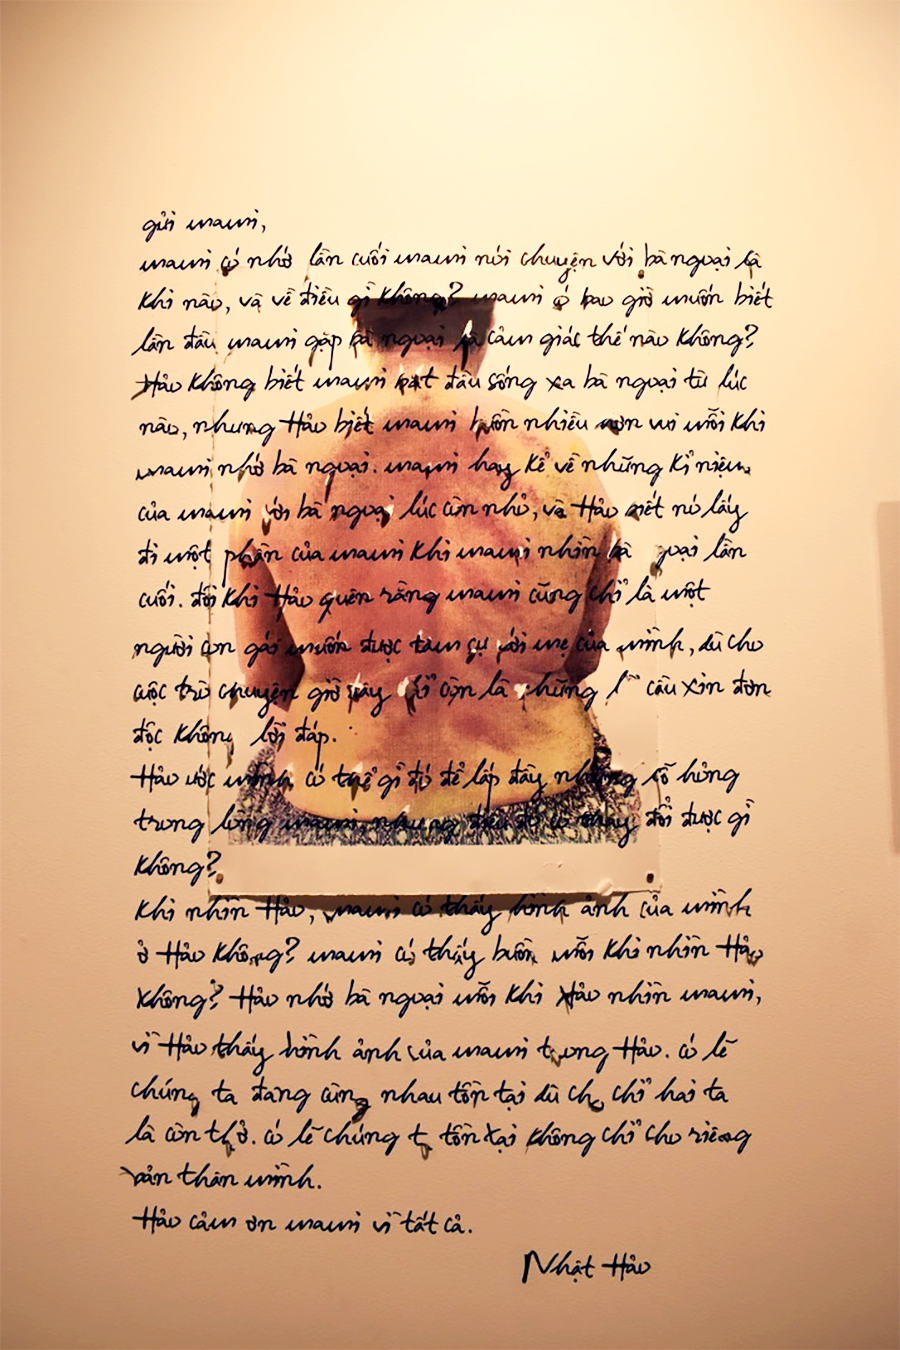 gửi mami,
mami có nhớ lần cuối mami nói chuyện với bà ngoại là
khi nào, và về điều gì không? mami có bao giờ muốn biết
lần đầu mami gặp bà ngoại là cảm giác thế nào không?
Hảo không biết mami bắt đầu sống xa bà ngoại từ lúc
nào, nhưng Hảo biết mami buồn nhiều hơn vui mỗi khi
mami nhớ bà ngoại. mami hay kể về những kỉ niệm
của mami với bà ngoại lúc còn nhỏ, và Hảo biết nó lấy
đi một phần của mami khi mami nhìn bà ngoại lần
cuối. đôi khi Hảo quên rằng mami cũng chỉ là một
người con gái muốn được tâm sự với mẹ của mình, dù cho
cuộc trò chuyện giờ đây chỉ còn là những lời cầu xin đơn
độc không lời đáp.
Hảo ước mình có thể gì đó để lấp đầy những lỗ hỏng
trong lòng mami, nhưng điều đó có thay đổi được gì
không?
Khi nhìn Hảo, mami có thấy hình ảnh của mình
ở Hảo không? mami có thấy buồn mỗi khi nhìn Hảo
không? Hảo nhớ bà ngoại mỗi khi Hảo nhìn mami,
vì Hảo thấy hình ảnh của mami trong Hảo. có lẽ
chúng ta đang cùng nhau tồn tại dù cho chỉ hai ta
là còn thở. có lẽ chúng ta tồn tại không chỉ cho riêng
bản thân mình.
Hảo cảm ơn mami vì tất cả.
Nhật Hảo